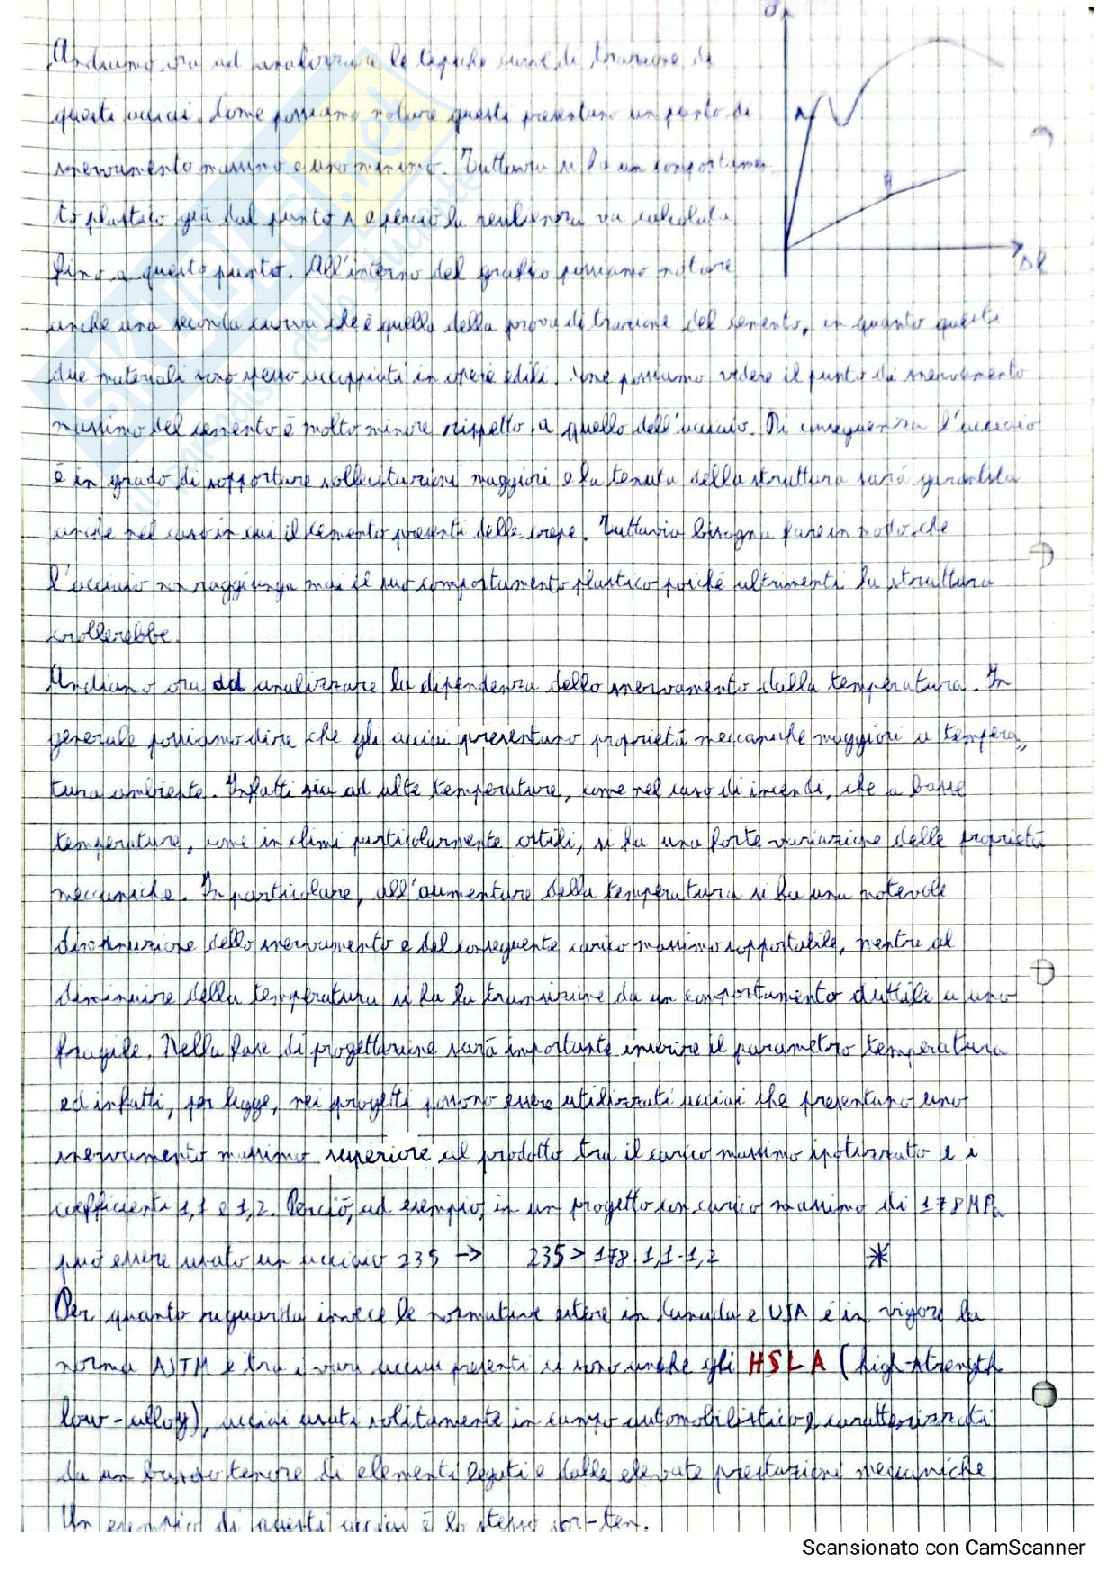 σ
Andiamo ora ad analizzare le tipiche curve di trazione di
questi acciai. Come possiamo notare questi presentano un punto di
snervamento massimo e uno minimo. Tuttavia si ha un comportamen-
to plastico già dal punto s e perciò la resilienza va calcolata
fino a questo punto. All'interno del grafico possiamo notare
Δl
anche una seconda curva che è quella della prova di trazione del cemento, in quanto questi
due materiali sono spesso accoppiati in opere edili. Come possiamo vedere il punto di snervamento
massimo del cemento è molto minore rispetto a quello dell'acciaio. Di conseguenza l'acciaio
è in grado di sopportare sollecitazioni maggiori e la tenuta della struttura sarà garantita
anche nel caso in cui il cemento presenti delle crepe. Tuttavia bisogna fare in modo che
l'acciaio non raggiunga mai il suo comportamento plastico poiché altrimenti la struttura
crollerebbe.
Andiamo ora ad analizzare la dipendenza dello snervamento dalla temperatura. In
generale possiamo dire che gli acciai presentano proprietà meccaniche maggiori a tempera-
tura ambiente. Infatti sia ad alte temperature, come nel caso di incendi, che a basse
temperature, come in climi particolarmente ostili, si ha una forte variazione delle proprietà
meccaniche. In particolare, all'aumentare della temperatura si ha una notevole
diminuzione dello snervamento e del conseguente carico massimo sopportabile, mentre al
diminuire della temperatura si ha la transizione da un comportamento duttile a uno
fragile. Nella fase di progettazione sarà importante inserire il parametro temperatura
ed infatti, per legge, nei progetti possono essere utilizzati acciai che presentano uno
snervamento massimo superiore al prodotto tra il carico massimo ipotizzato e i
coefficienti 1,1 e 1,2. Perciò, ad esempio, in un progetto con carico massimo di 178 MPa
può essere usato un acciaio 235 → 235 > 178 · 1,1 · 1,2 *
Per quanto riguarda invece le normative estere in Canada e USA è in vigore la
norma ASTM e tra i vari acciai presenti ci sono anche gli HSLA (high-strength
low-alloy), acciai usati solitamente in campo automobilistico e caratterizzati
da un basso tenore di elementi leganti e dalle elevate prestazioni meccaniche
Un esempio di questi acciai è lo stesso cor-ten.
Scansionato con CamScanner